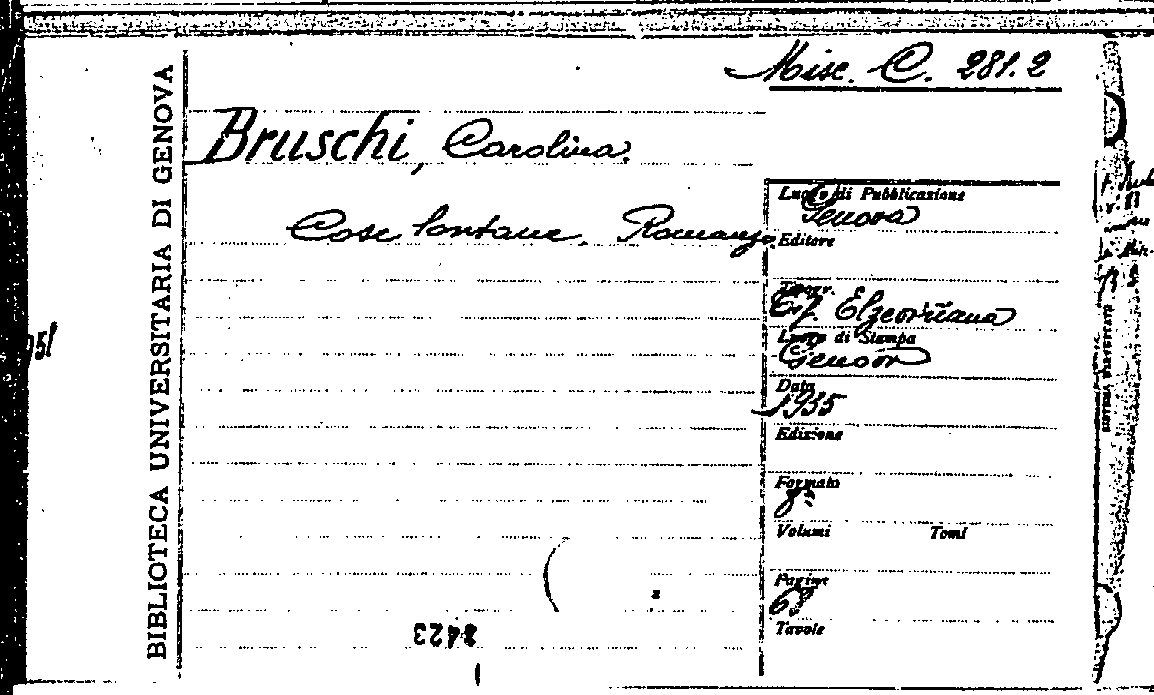 Misc. C. 281.2
BIBLIOTECA UNIVERSITARIA DI GENOVA
Bruschi, Carolina.
Cose lontane. Romanzo.
Luogo di Pubblicazione
Genova
Editore
Tipogr.
Elzeviriana
Luogo di Stampa
Genova
Data
1935
Edizione
Formato
8º
Volumi Tomi
Pagine
Tavole
8423